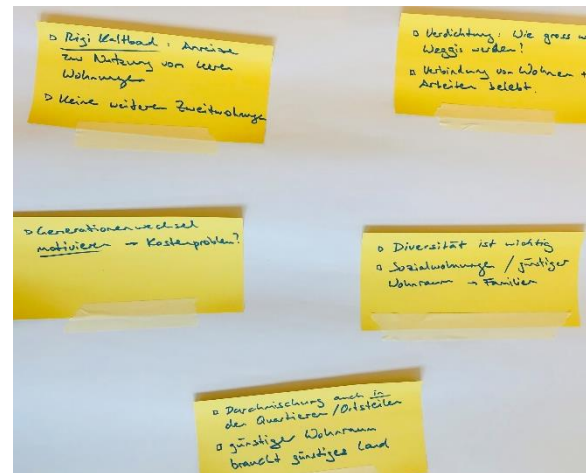 ▫ Rigi Kaltbad: Anreize
zur Nutzung von leeren
Wohnungen
▫ Keine weiteren Zweitwohnungen
▫ Verdichtung: Wie gross
Weggis werden?
▫ Verbindung von Wohnen +
Arbeiten belebt.
▫ Generationenwechsel
motivieren → Kostenproblem?
▫ Diversität ist wichtig
▫ Sozialwohnungen / günstiger
Wohnraum → Familien
▫ Durchmischung auch in
den Quartieren/Ortsteilen
▫ günstiger Wohnraum
braucht günstiges Land